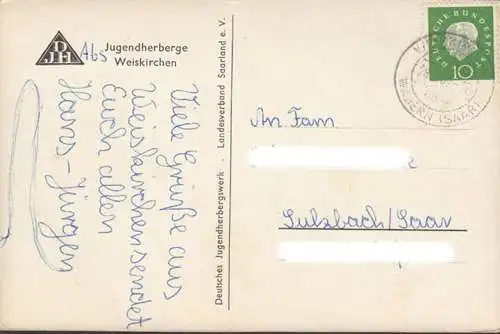 DJH
Jugendherberge
Weiskirchen
Abs
Viele Grüße aus
Weiskirchen sendet
Euch allen
Hans-Jürgen
Deutsches Jugendherbergswerk · Landesverband Saarland e. V.
DEUTSCHE BUNDESPOST
10
(SAAR)
An Fam
Sulzbach/Saar